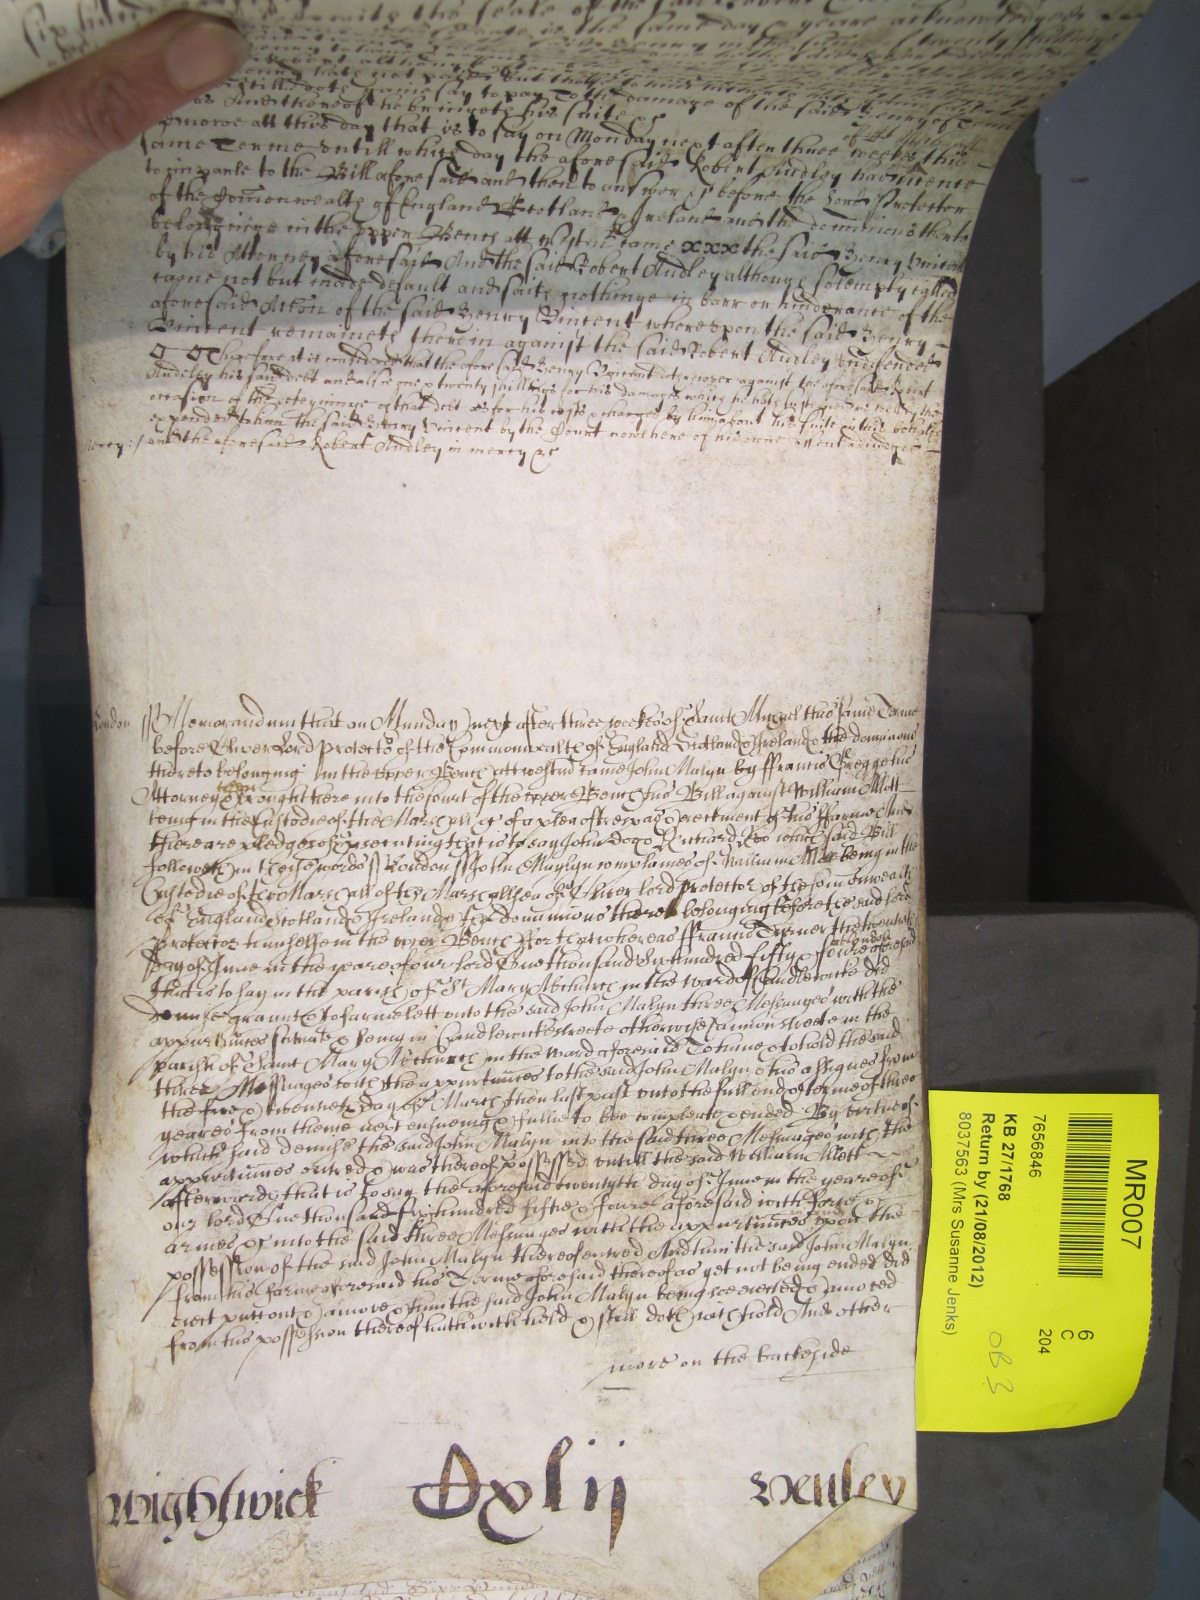 still doth gainesay to pay To the damage of the said Henry of Tenn
And thereof he bringeth his suite &c
all this day that is to say on Monday next after three weekes
same Terme untill which day the aforesaid Robert Audley had licence
to imparle to the Bill aforesaid and then to answer &c before the Lord Protector
of the Comonwealth of England Scotland & Ireland and the dominions thereto
belonginge in the upper Bench att Westm came xxx the said Henry Vincent
by his Attorney aforesaid And the said Robert Audley although solemply called
came not but made default and saith nothinge in barr or hinderance of the
aforesaid Accon of the said Henry Vincent whereupon the said Henry
Vincent remaineth therein against the said Robert Audley undefended
Therefore it is considered that the aforesaid Henry Vincent doe recover against the aforesaid Robert
Audley his said debt and alsoe one & twenty shillings for his damages which he hath susteyned as well by the
occasion of the deteyninge of that debt as for his costs & charges by him about his suite in this behalfe
expended to him the said Henry Vincent by the Court nowe here of his owne assent adiudged
mercy :/ and the aforesaid Robert Audley in mercy &c
London ss Memorandum that on Munday next after three weekes of Saint Michael this same Terme
before Oliver Lord protector of the Commonwealth of England Scotland & Ireland & the dominions
thereto belonging in the upper Bench att Westm came John Malyn by Francis Gregge his
Attorney & brought here into the Court of the upper Bench his Bill against William Allett
being in the Custodie of the Marshall &c of a plea of trespas & eiectment of his Farme And
there are pledges of prosecuting that is to say John Doo & Richard Roo which said Bill
followeth in these words ss London ss John Malyn complaines of William Allett being in the
Custodie of the Marshall of the Marshallsea of Oliver lord protector of the Commonwealth
of England Scotland & Ireland & the dominions thereto belonging before the said lord
Protector himselfe in the upper Bench For that whereas Francis Turner the twentieth
day of June in the yeare of our lord One thousand six hundred fifty & foure at London aforesaid
that is to say in the parish of St Mary Abchurch in the ward of Candlewicke did
demise graunt & to farme lett unto the said John Malyn three Messuages with the
appurtnnces scituate & being in Candlewickstreete otherwise Cannonstreete in the
parish of Saint Mary Abchurch in the Ward aforesaid To have & to hold the said
three Messuages with the appurtnnces to the said John Malyn & his assignes from
the five & twentieth day of March then last past unto the full end & terme of three
yeares from thence next ensueing & fullie to bee compleate & ended By virtue of
which said demise the said John Malyn into the said three Messuages with the
appurtnnces entred & was thereof possessed untill the said William Allett
afterwards that is to say the aforesaid twentyth day of June in the yeare of
our lord One thousand six hundred fiftie & foure aforesaid with force &
armes &c into the said three Messuages with the appurtnnces upon the
possession of the said John Malyn thereof entred And him the said John Malyn
from his farme aforesaid his Terme aforesaid thereof as yet not being ended did
eiect put out & amove & him the said John Malyn being soe eiected & amoved
from his possession thereof hath withheld & still doth withhold And other
more on the backside
Wightwick Cxlij Henley
MR007
6
C
204
7656846
KB 27/1768
Return by (21/08/2012)
8037563 (Mrs Susanne Jenks)
OB 3